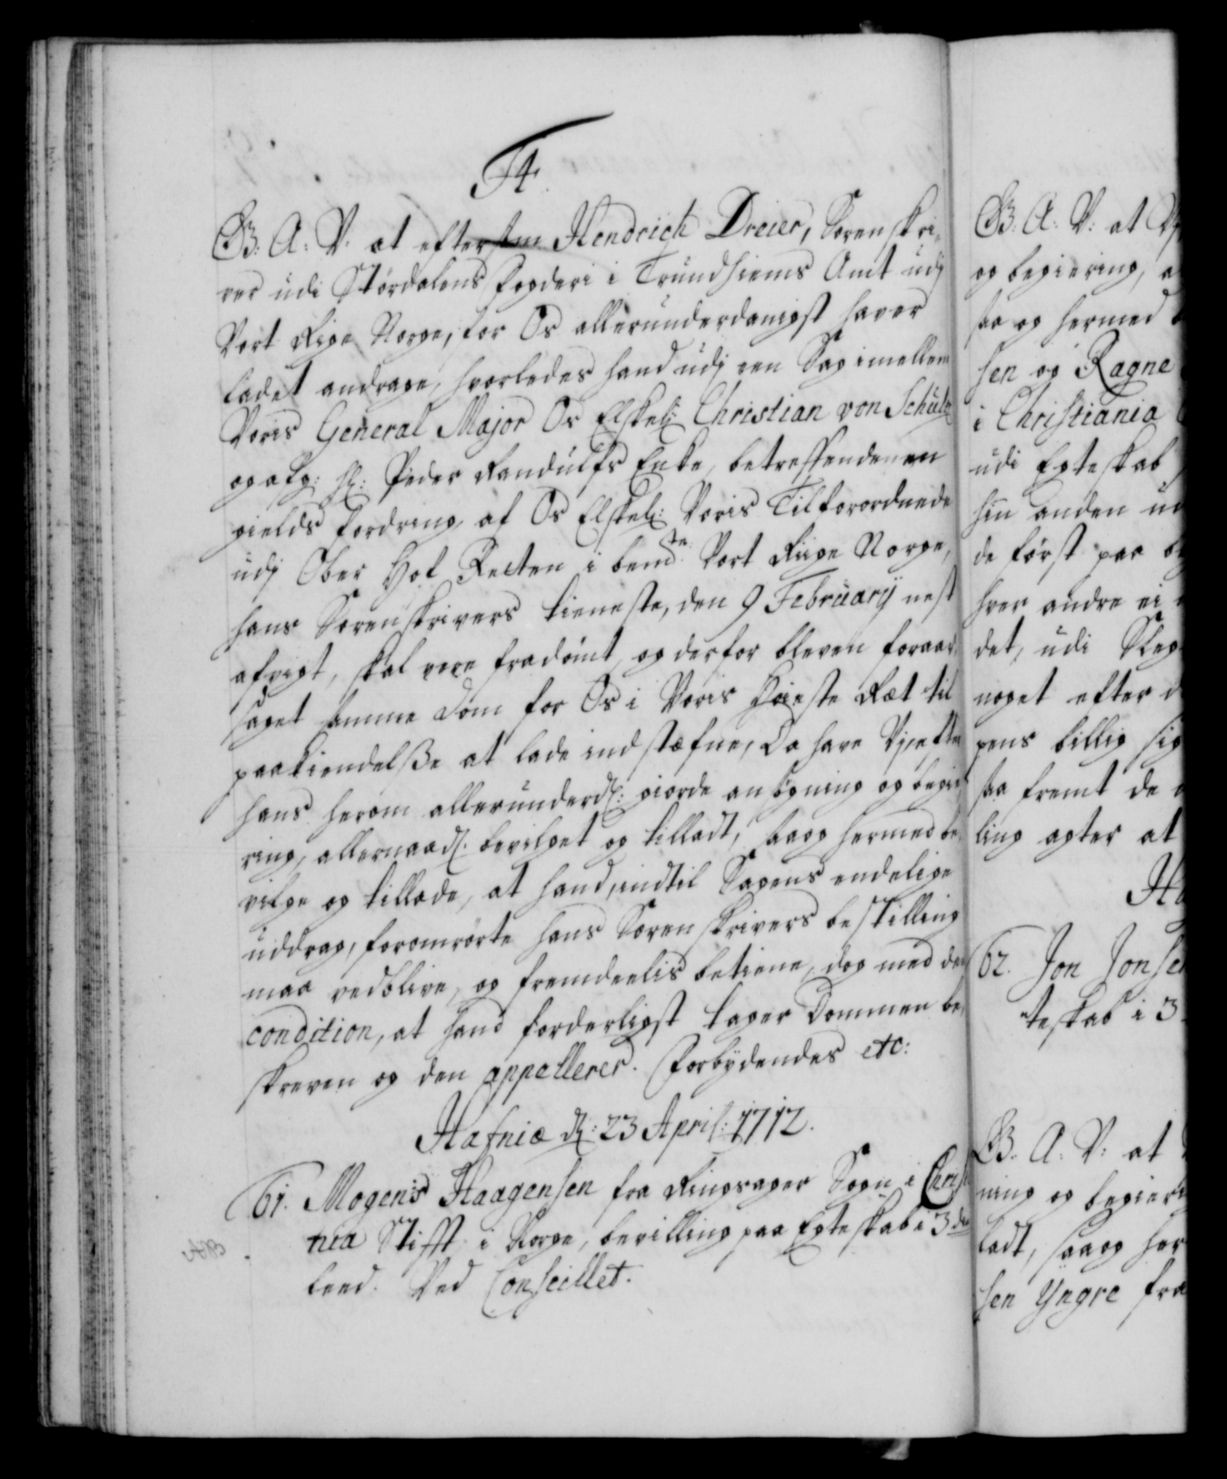 F4.
G. A. V. at eftersom Hendrich Dreier, Sorenskri-
ver udi Størdalens fogderi i Trundhiems Amt udj
Vort Rige Norge, for Os allerunderdanigst haver
ladet andrage, hvorledes hand udj een Sag imellem
Voris General Major Os Elskel: Christian von Schültz
og afg: Sl: Peder Randulfs Enke, betreffende een
gields fordring af Os Elskel: Voris Tilforordnede
udj Ober Hof Retten i bemte Vort Rige Norge,
hans Sorenskrivers tieneste, den 9 February nest
afvigt, skal vere fradømt, og derfor bleven foraar-
saget samme dom for Os i Voris Høieste Ræt til
paakiendelsse at lade indstæfne, Da have Vj, efter
hans herom allerunderd: giorde ansøgning og begie-
ring, allernaad: bevilget og tilladt, saa og hermed be-
vilge og tillade, at hand, indtil Sagens endelige
uddrag, foromrørte hans Sorenskrivers bestilling
maa vedblive, og fremdeelis betiene, dog med den
condition, at hand forderligst tager Dommen be-
skreven og den appellerer. Forbydendes etc:
Hafniæ d: 23 April: 1712.
61. Mogens Haagensen fra Ringsager Sogn i Christi
nia Stifft i Norge, bevilling paa Egteskab i 3die
leed. Ved Conseillet.
G. A. V: at Vj
og begiering, a
saa og hermed
sen og Ragne
i Christiania
udi Egteskab
hin anden ud
de først paa
hver andre ei
det, udi Sleg
noget efter d
gens billig sig
saa fremt de
ling agter at
Ha
62. Jon Jonse
teskab i 3
G. A. V: at
ning og begier
ladt, saa og her
sen Yngre fra